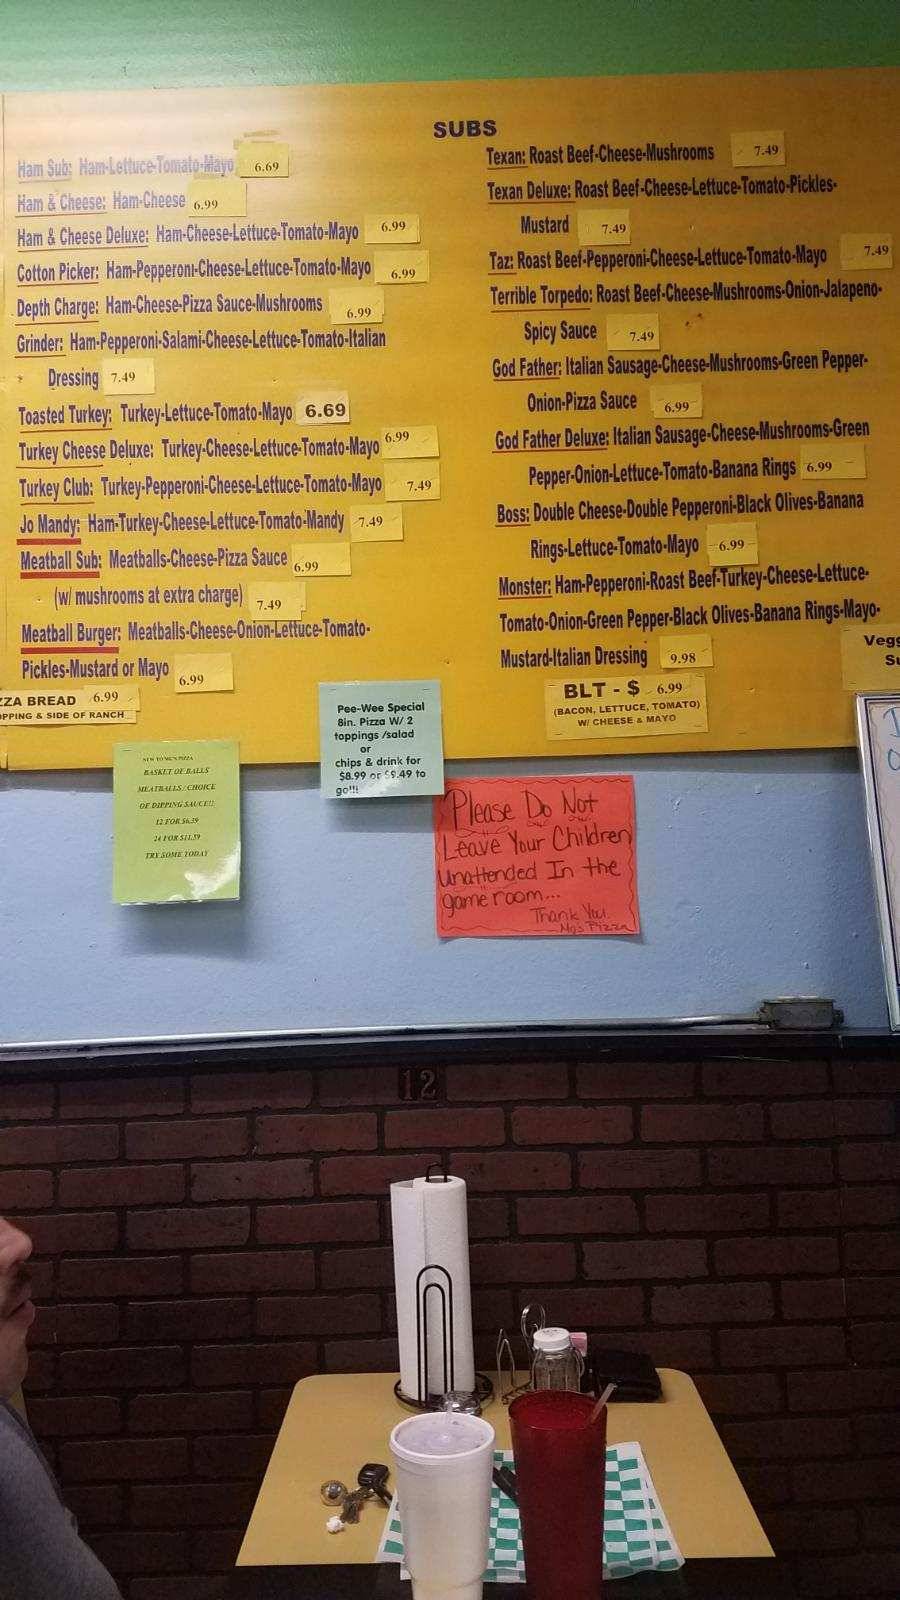 SUBS
Ham Sub: Ham-Lettuce-Tomato-Mayo 6.69
Ham & Cheese: Ham-Cheese 6.99
Ham & Cheese Deluxe: Ham-Cheese-Lettuce-Tomato-Mayo 6.99
Cotton Picker: Ham-Pepperoni-Cheese-Lettuce-Tomato-Mayo 6.99
Depth Charge: Ham-Cheese-Pizza Sauce-Mushrooms 6.99
Grinder: Ham-Pepperoni-Salami-Cheese-Lettuce-Tomato-Italian
Dressing 7.49
Toasted Turkey: Turkey-Lettuce-Tomato-Mayo 6.69
Turkey Cheese Deluxe: Turkey-Cheese-Lettuce-Tomato-Mayo 6.99
Turkey Club: Turkey-Pepperoni-Cheese-Lettuce-Tomato-Mayo 7.49
Jo Mandy: Ham-Turkey-Cheese-Lettuce-Tomato-Mandy 7.49
Meatball Sub: Meatballs-Cheese-Pizza Sauce 6.99
(w/ mushrooms at extra charge) 7.49
Meatball Burger: Meatballs-Cheese-Onion-Lettuce-Tomato-
Pickles-Mustard or Mayo 6.99
ZZA BREAD 6.99
OPPING & SIDE OF RANCH
Texan: Roast Beef-Cheese-Mushrooms 7.49
Texan Deluxe: Roast Beef-Cheese-Lettuce-Tomato-Pickles-
Mustard 7.49
Taz: Roast Beef-Pepperoni-Cheese-Lettuce-Tomato-Mayo 7.49
Terrible Torpedo: Roast Beef-Cheese-Mushrooms-Onion-Jalapeno-
Spicy Sauce 7.49
God Father: Italian Sausage-Cheese-Mushrooms-Green Pepper-
Onion-Pizza Sauce 6.99
God Father Deluxe: Italian Sausage-Cheese-Mushrooms-Green
Pepper-Onion-Lettuce-Tomato-Banana Rings 6.99
Boss: Double Cheese-Double Pepperoni-Black Olives-Banana
Rings-Lettuce-Tomato-Mayo 6.99
Monster: Ham-Pepperoni-Roast Beef-Turkey-Cheese-Lettuce-
Tomato-Onion-Green Pepper-Black Olives-Banana Rings-Mayo-
Mustard-Italian Dressing 9.98
BLT - $ 6.99
(BACON, LETTUCE, TOMATO)
W/ CHEESE & MAYO
Vegg
Su
Pee-Wee Special
8in. Pizza W/ 2
toppings /salad
or
chips & drink for
$8.99 or $9.49 to
go!!!
NEW TO MG'S PIZZA
BASKET OF BALLS
MEATBALLS / CHOICE
OF DIPPING SAUCE!!
12 FOR $6.39
24 FOR $11.59
TRY SOME TODAY
Please Do Not
Leave Your Children
Unattended In the
game room...
Thank You.
Mg's Pizza
12